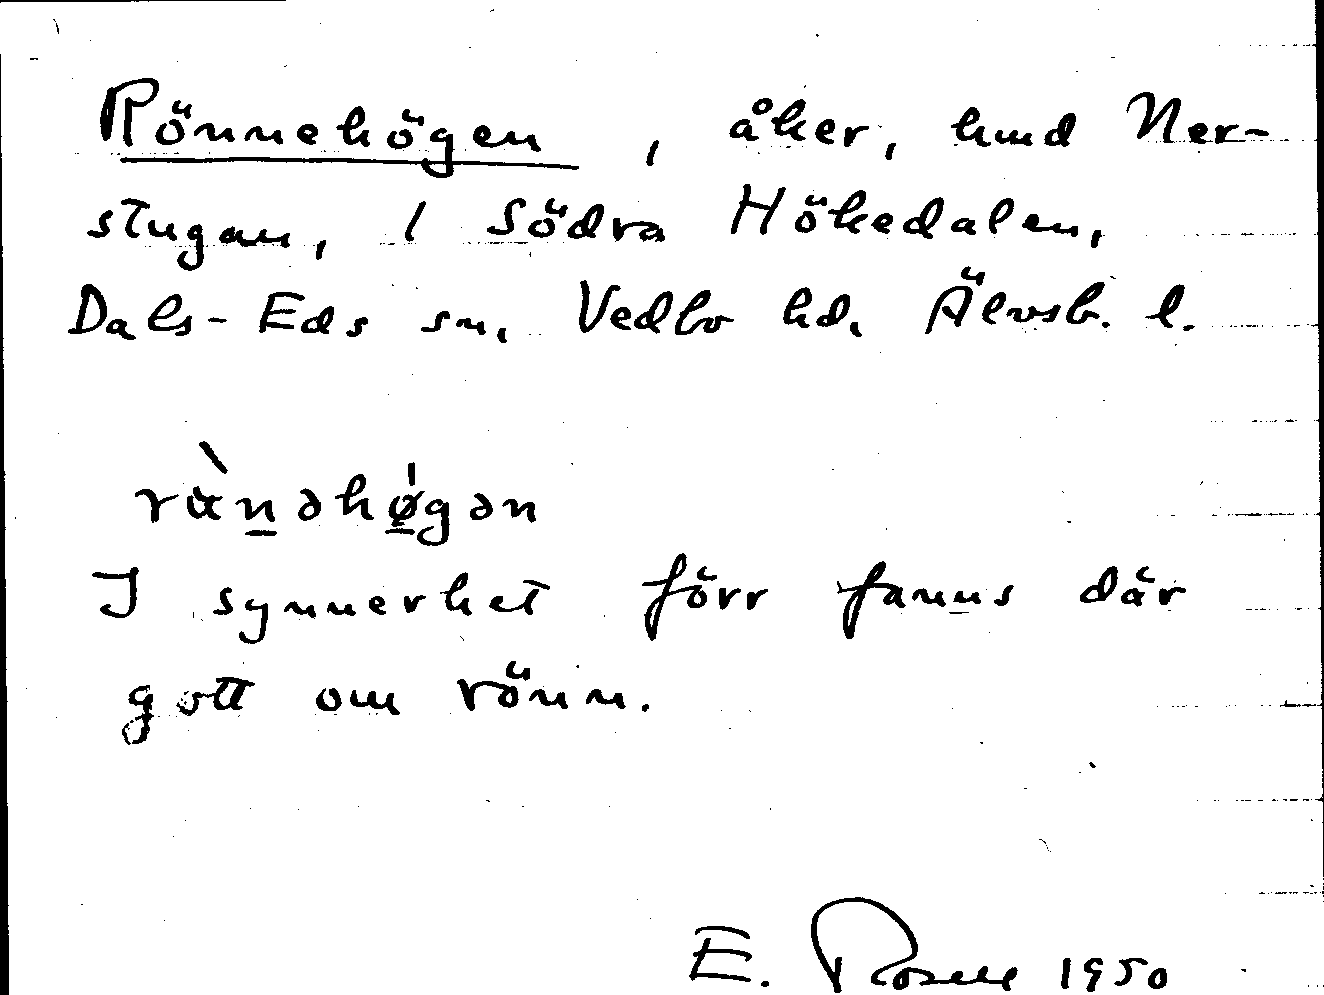 Rönnehögen, åker, hmd Ner-
stugan, 1 Södra Hökedalen,
Dals-Eds sn, Vedbo hd. Älvsb. l.
rὰn̲əhǿ̲gən
I synnerhet förr fanns där
gott om rönn.
E. Rosell 1950